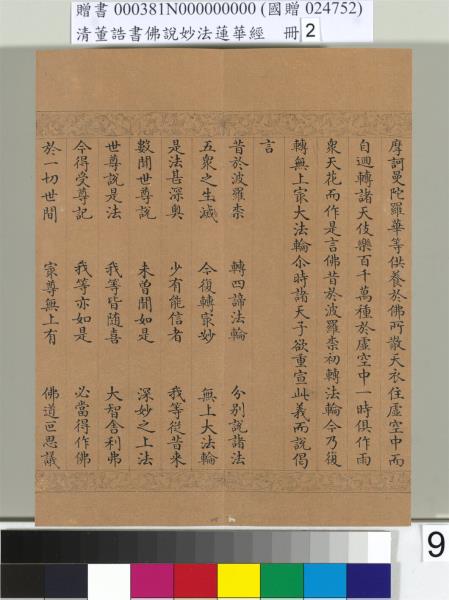 贈書 000381N000000000 (國贈 024752)
清董誥書佛說妙法蓮華經 冊 2
摩訶曼陀羅華等供養於佛所散天衣住虛空中而
自迴轉諸天伎樂百千萬種於虛空中一時俱作雨
衆天花而作是言佛昔於波羅柰初轉法輪今乃復
轉無上㝡大法輪尒時諸天子欲重宣此義而說偈
言
昔於波羅柰 轉四諦法輪 分別說諸法
五衆之生滅 今復轉㝡妙 無上大法輪
是法甚深奧 少有能信者 我等從昔來
數聞世尊說 未曾聞如是 深妙之上法
世尊說是法 我等皆隨喜 大智舍利弗
今得受尊記 我等亦如是 必當得作佛
於一切世間 㝡尊無上有 佛道叵思議
9